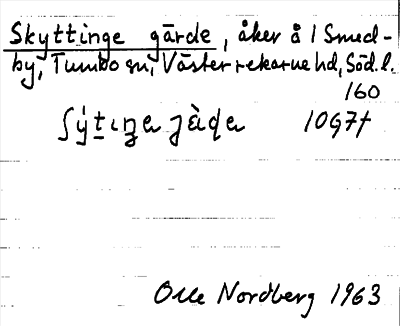 Skyttinge gärde, åker å 1 Smed-
by, Tumbo sn, Västerrekarne hd, Söd. l.
160
10G7f
Olle Nordberg 1963